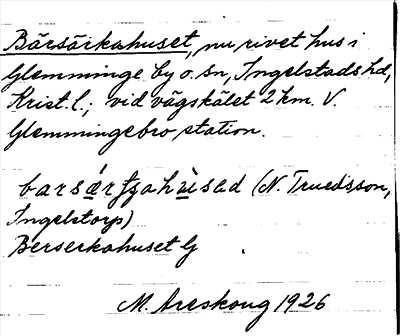 Bärsärkahuset, nu rivet hus i
Glemminge by o. sn, Ingelstads hd,
Krist. l.; vid vägskälet 2 km. V.
Glemmingebro station.
(N. Truedsson,
Ingelstorp)
Berserkahuset G
M. Areskoug 1926